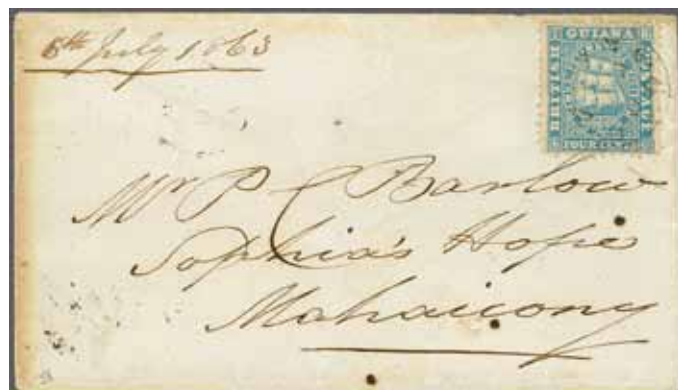 8th July 1863
BRITISH GUIANA POSTAGE
FOUR CENTS
Mr P C Barlow
Sophia's Hope
Mahaicony